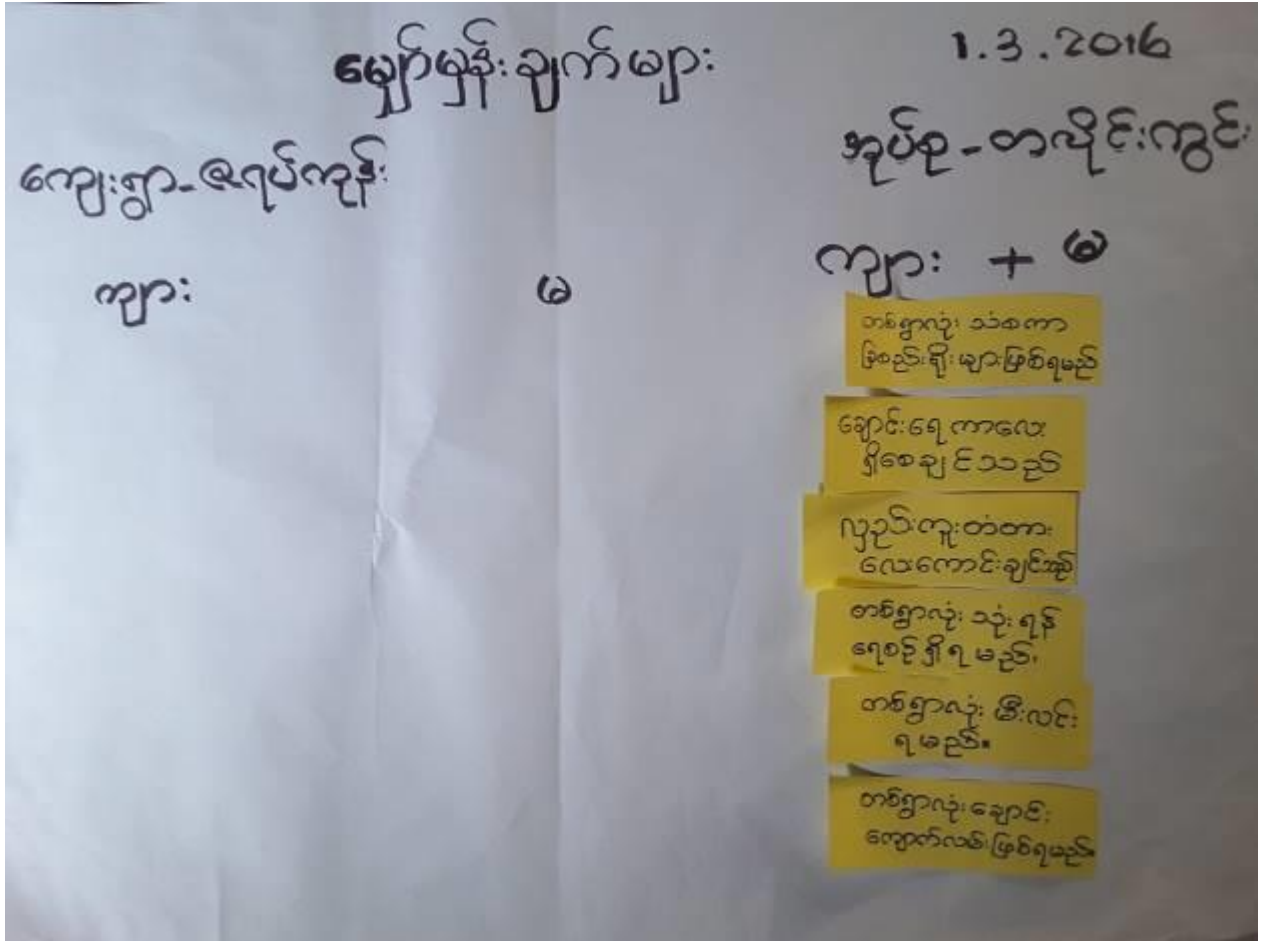 မျှော်မှန်းချက်များ
1.3.2016
ကျေးရွာ-ဇရပ်ကုန်း
အုပ်စု-တလိုင်းကွင်း
ကျား
မ
ကျား + မ
တစ်ရွာလုံး သံစကာ
ခြံစည်းရိုးများဖြစ်ရမည်
ချောင်းရေ ကာလေး
ရှိစေချင်သည်
လှည်းကူးတံတား
လေးကောင်းချင်သည်
တစ်ရွာလုံး သုံးရန်
ရေစဉ်ရှိရမည်.
တစ်ရွာလုံး မီးလင်း
ရမည်။
တစ်ရွာလုံးချောင်း
ကျောက်လမ်းဖြစ်ရမည်။